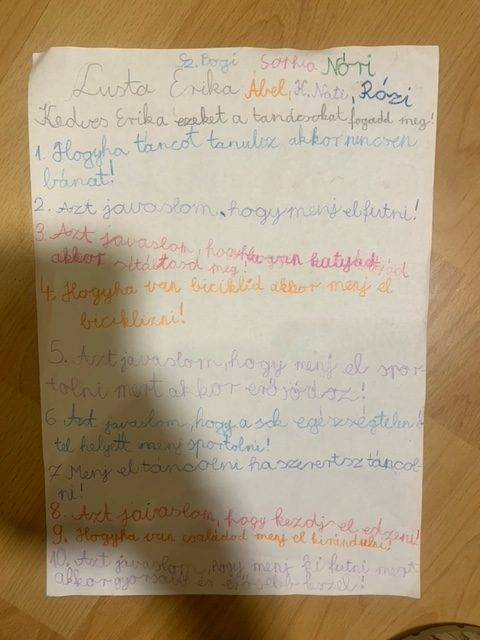 Sz. Bogi Sophia Nóri
Lusta Erika Ábel, H. Nati, Rózi
Kedves Erika ezeket a tanácsokat fogadd meg!
1. Hogyha táncot tanulsz akkor nincsen
bánat!
2. Azt javaslom, hogy menj el futni!
3. Azt javaslom, hogyha van kutyád
akkor sétáltasd meg!
4. Hogyha van biciklid akkor menj el
biciklizni!
5. Azt javaslom, hogy menj el spor-
tolni mert akkor erősödsz!
6. Azt javaslom, hogy a sok egészségtelen é
tel helyett menj sportolni!
7. Menj el táncolni ha szerertsz táncol-
ni!
8. Azt javaslom, hogy kezdj el edzeni!
9. Hogyha van családod menj el kirándulni!
10. Azt javaslom, hogy menj ki futni mert
akkor gyorsabb és erősebb leszel!